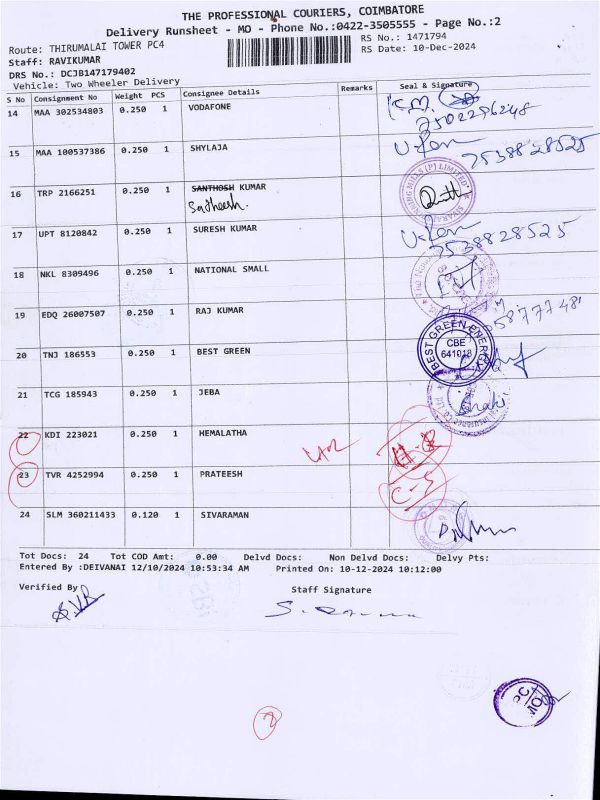 THE PROFESSIONAL COURIERS, COIMBATORE
Delivery Runsheet - MO - Phone No.:0422-3505555 - Page No.:2
Route: THIRUMALAI TOWER PC4
RS No.: 1471794
Staff: RAVIKUMAR
RS Date: 10-Dec-2024
DRS No.: DCJB147179402
Vehicle: Two Wheeler Delivery
S No Consignment No Weight PCS Consignee Details Remarks Seal & Signature
14 MAA 302534803 0.250 1 VODAFONE
7502296248
15 MAA 100537386 0.250 1 SHYLAJA
7538828525
16 TRP 2166251 0.250 1 SANTHOSH KUMAR
Sadheesh.
17 UPT 8120842 0.250 1 SURESH KUMAR
7538828525
18 NKL 8309496 0.250 1 NATIONAL SMALL
19 EDQ 26007507 0.250 1 RAJ KUMAR
20 TNJ 186553 0.250 1 BEST GREEN
BEST GREEN ENERGY
CBE
641018
21 TCG 185943 0.250 1 JEBA
22 KDI 223021 0.250 1 HEMALATHA
23 TVR 4252994 0.250 1 PRATEESH
C-5
24 SLM 360211433 0.120 1 SIVARAMAN
Tot Docs: 24 Tot COD Amt: 0.00 Delvd Docs: Non Delvd Docs: Delvy Pts:
Entered By :DEIVANAI 12/10/2024 10:53:34 AM Printed On: 10-12-2024 10:12:00
Verified By
Staff Signature
2